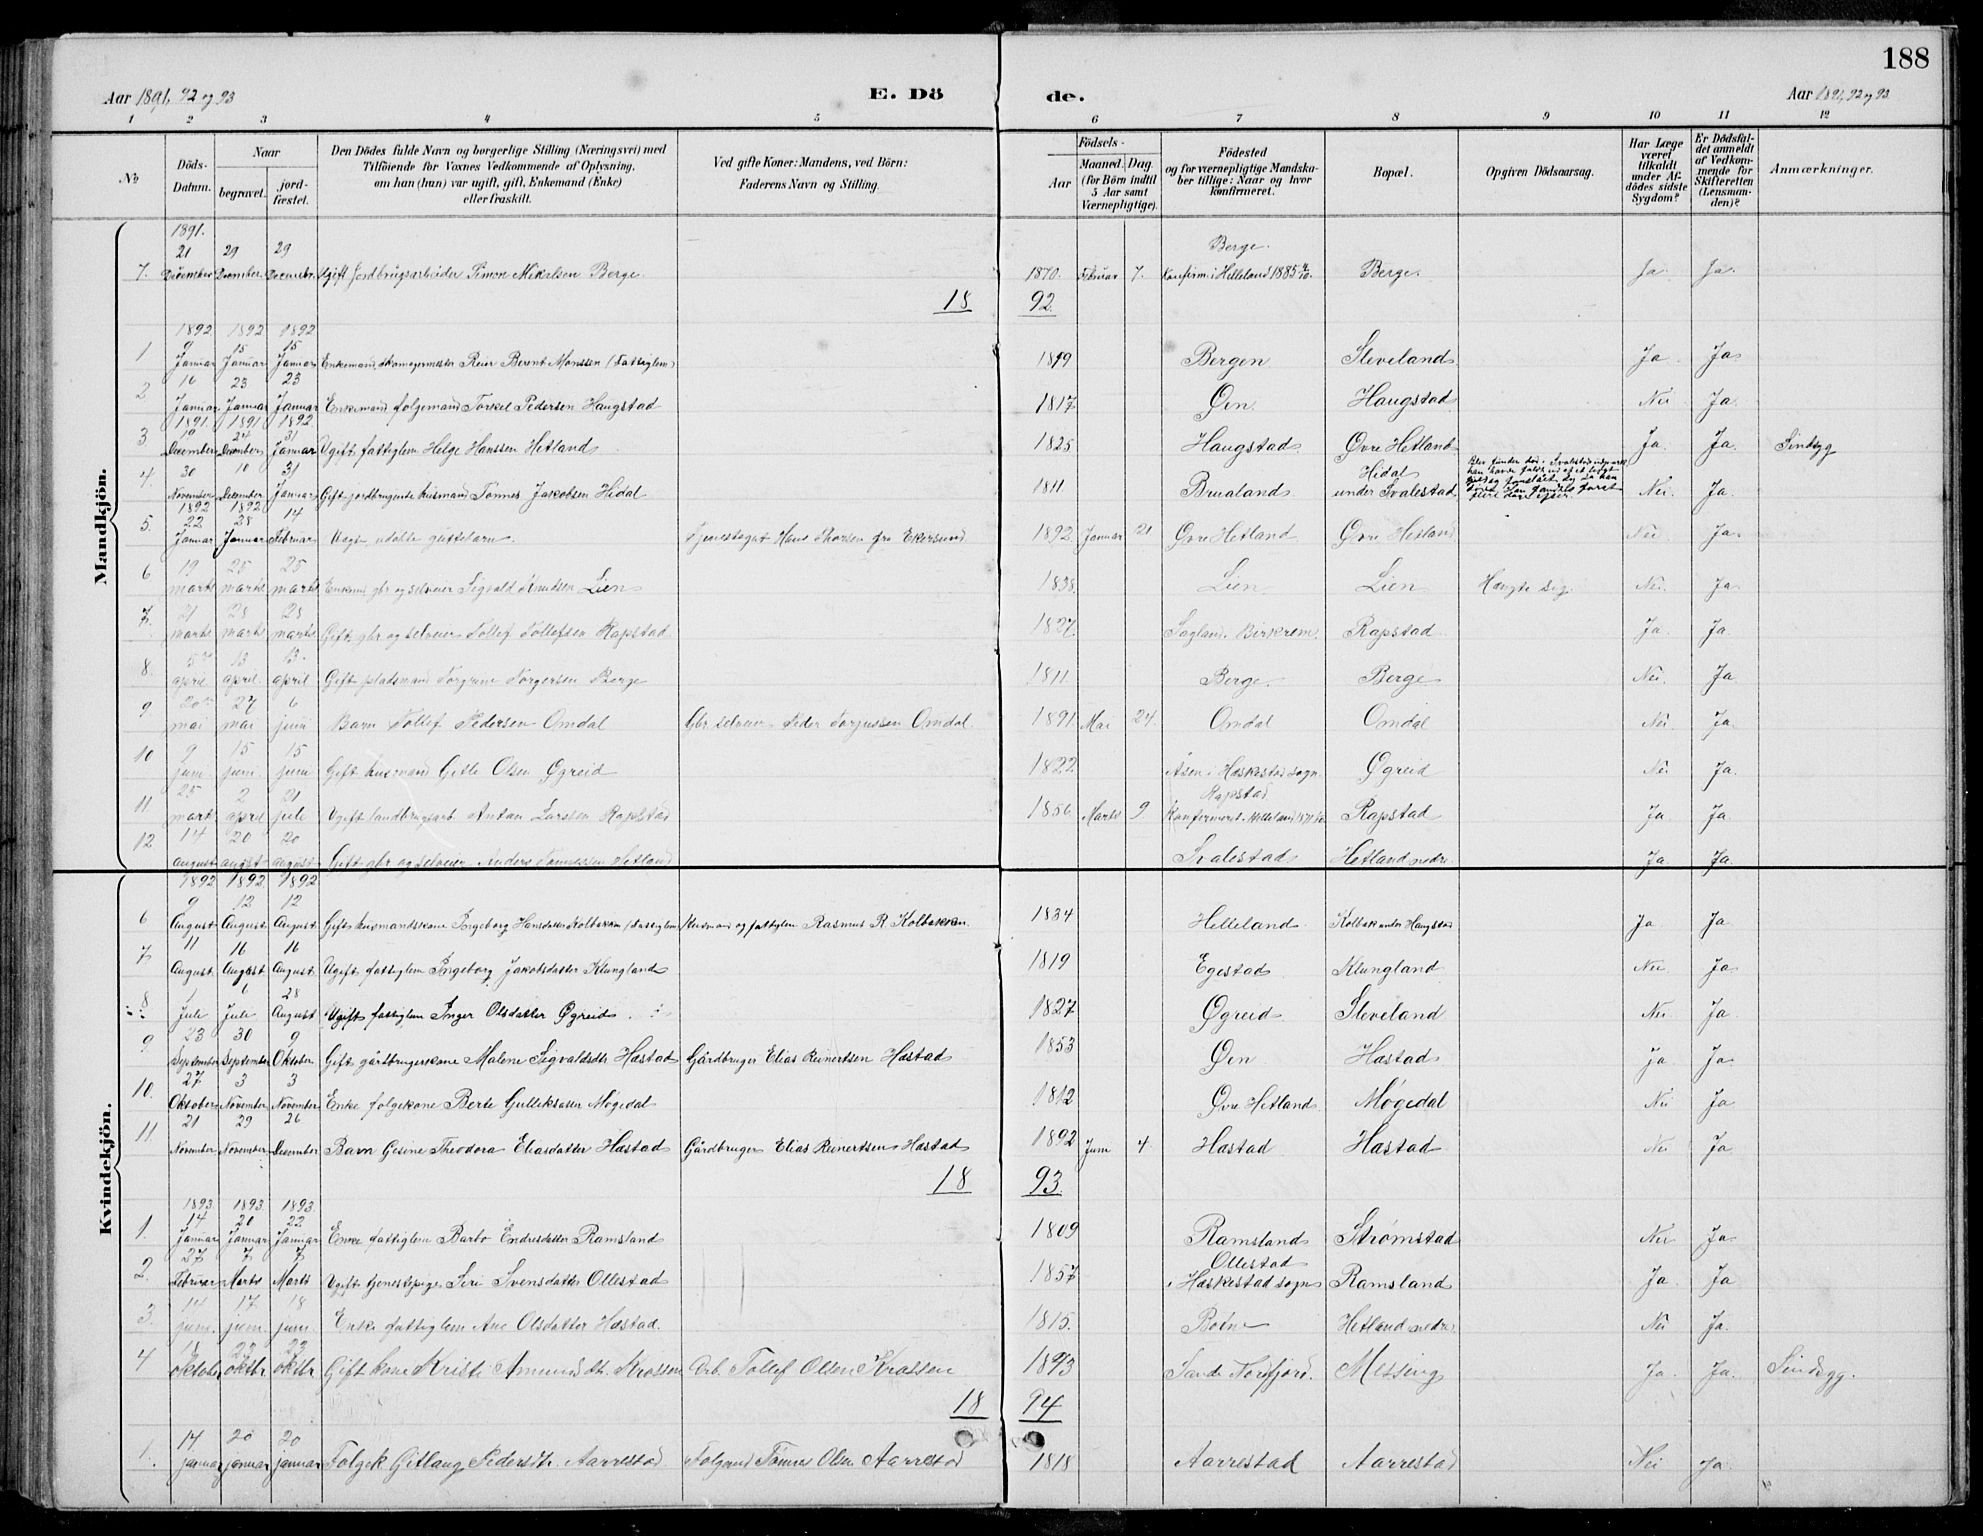 188
Aar 1891, 92 og 93
E. Dö
de.
Aar 1891, 92 og 93.
1 2 3 4 5 6 7 8 9 10 11 12
No
Döds-Datum.
Naar
begravet.
jord-fæstet.
Den Dödes fulde Navn og borgerlige Stilling (Næringsvei) med Tilföiende for Voxnes Vedkommende af Oplysning, om han (hun) var ugift, gift, Enkemand (Enke) eller fraskilt.
Ved gifte Koner: Mandens, ved Börn: Faderens Navn og Stilling.
Födsels-
Aar
Maaned. Dag.
(for Börn indtil 5 Aar samt Værnepligtige).
Födested og for værnepligtige Mandskaber tillige: Naar og hvor konfirmeret.
Bopæl.
Opgiven Dödsaarsag.
Har Læge været tilkaldt under Afdödes sidste Sygdom?
Er Dödsfaldet anmeldt af Vedkommende for Skifteretten (Lensmanden)?
Anmærkninger.
Mandkjön.
1891.
21 29 29 Berge.
7. December December December Ugift Jordbrugsarbeider Simon Mikelsen Berge. 1870. Februar 7. Konfirm. i Helleland 1885 4/10. Berge. Ja. Ja.
18 92.
1892 1892 1892
9 15 15
1 Januar Januar Januar Enkemand, skomagermester Reier Berent Monssen (Fattiglem) 1819 Bergen Sleveland Ja Ja
16 23 23
2 Januar Januar Januar Enkemand folgemand Torkel Pedersen Haugstad 1817 Øen Haugstad Nei Ja
1891. 1891 1892
18 24 31
3 December December Januar Ugift fattiglem Helge Hanssen Hetland 1825 Haugstad Øvre Hetland Ja Ja Sindsyg
30 10 31
4. November December Januar Gift jordbrugende husmand Tønnes Jakobsen Hidal 1811. Brualand Hidal under Svalestad Nei. Ja.
1892 1892
22 28 14
5. Januar Januar Februar Uægt. udøbte guttebarn. Tjenestegut Hans Thorsen fra Ekersund 1892 Januar 21 Øvre Hetland Øvre Hetland Nei. Ja.
19 25 25
6 marts marts marts Enkem. gbr og selveier Sigvald Knudsen Lien 1838. Lien Lien Hængte sig Nei. Ja
21 28 28
7. marts marts marts Gift gbr og selveier Tollef Tollefsen Rapstad 1827. Sagland. Birkrem. Rapstad Ja. Ja
5te 13 13.
8. april april april Gift pladsmand Torgrim Torgersen Berge 1811 Berge. Berge Nei. Ja
20de 27 6
9 mai mai juni Barn Tollef Pedersen Omdal Gbr. selveier Peder Torjussen Omdal. 1891. Mai 24. Omdal Omdal Nei Ja.
9 15 15
10 juni. juni. juni Gift husmand Gitle Olsen Øgreid 1822 Åsen i Heskestad sogn Øgreid Nei Ja.
25 2 21 Rapstad
11 mart april jule Ugift landbrugsarb Anton Larssen Rapstad 1856 Marts 9 Konfirmeret Helleland Rapstad Ja Ja
14 20 20
12 august august august Gift gbr og selveier Anders Tønnessen Hetland Svalestad Hetland nedre. Ja Ja.
Kvindekjön.
1892 1892 1892
9 12 12
6 August August August Gift husmandskone Ingeborg Hansdatter Kolbakken (Fattiglem) Husmand og fattiglem Rasmus R. Kolbakken. 1834 Helleland Kolbak under Haugstad Ja Ja
11 16 16
7. August August August Ugift fattiglem Ingeborg Jakobsdatter Klungland 1819 Egestad Klungland Nei Ja
1 6 28
8 Jule Jule August Ugift fattiglem Inger Olsdatter Øgreid 1827 Øgreid Sleveland Nei Ja
23 30 9
9 September September Oktober Gift gårdbrugerkone Malene Sigvaldsdtr Hæstad Gårdbruger Elias Reinertsen Hæstad 1853 Øen Hæstad Ja Ja
27 3 3
10. Oktober November November Enke folgekone Berte Gulliksdatter Møgedal 1812 Øvre Hetland Møgedal Nei Ja
21 29 26
11. November November December Barn Gesine Theodora Eliasdatter Hæstad Gårdbruger Elias Reinertsen Hæstad 1892 Juni 4. Hæstad Hæstad Nei Ja
18 93.
1893. 1893 1893.
14 20 22
1. Januar Januar Januar Enke fattiglem Barbo Endresdatter Ramsland 1809 Ramsland Strømstad Nei Ja
27 7 7 Ollestad
2. Februar Marts Marts Ugift tjenestepige Siri Svensdatter Ollestad 1857 i Heskestad sogn Ramsland Ja Ja
14 17 18
3. juni. juni. juni. Enke fattiglem Ane Olsdatter Hæstad. 1815. Botne Hetland nedre Nei Ja.
23 23
4 Oktober Oktbr Oktbr Gift kone Kristi Amundsdtr. Krossen Arb. Tollef Olsen Krossen 1893 Sande Nordfjord. Messing Ja. Ja. Sindsyg.
18 94
14 20 20
1. januar januar januar Folgek Gitlaug Pedersdtr. Aarrestad Folgmd Tønnes Olsen Aarrestad 1818 Aarrestad Aarrestad Nei Ja.